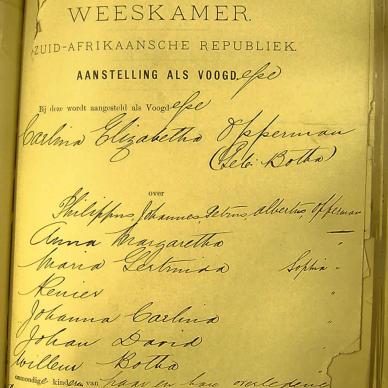 WEESKAMER.
ZUID-AFRIKAANSCHE REPUBLIEK.
AANSTELLING ALS VOOGDesse
Bij deze wordt aangesteld als Voogdesse
Carlina Elizabetha Opperman
(Geb: Botha)
over
Philippus, Johannes, Petrus, Albertus, Opperman
Anna Margaretha "
Maria Gertruida Sophia "
Renier "
Johanna Carlina "
Johan David "
Willem Botha "
onmondige kinderen van haar en haar overledene